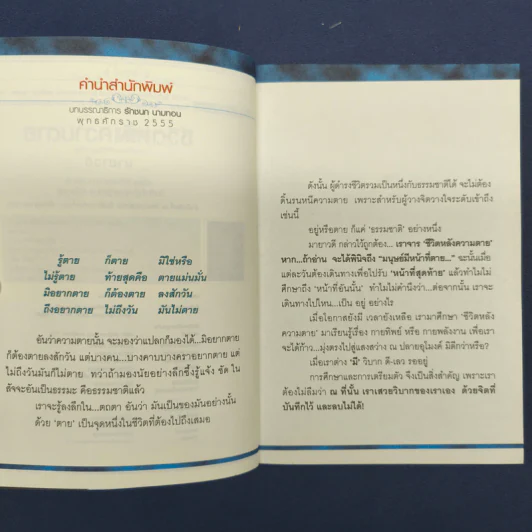 คำนำสำนักพิมพ์
บทบรรณาธิการ รักชนก นามทอน
พุทธศักราช 2555
รู้ตาย ก็ตาย มิใช่หรือ
ไม่รู้ตาย ท้ายสุดคือ ตายแม่นมั่น
มิอยากตาย ก็ต้องตาย ลงสักวัน
ถึงอยากตาย ไม่ถึงวัน มันไม่ตาย
อันว่าความตายนั้น จะมองว่าแปลกก็มองได้...มิอยากตาย
ก็ต้องตายลงสักวัน แต่บางคน...บางคาบบางคราอยากตาย แต่
ไม่ถึงวันมันก็ไม่ตาย ทว่าถ้ามองนัยอย่างลึกซึ้งรู้แจ้ง ชัด ใน
สัจจะอันเป็นธรรมะ คือธรรมชาติแล้ว
เราจะรู้ลงลึกใน...ตถตา อันว่า มันเป็นของมันอย่างนั้น
ด้วย 'ตาย' เป็นจุดหนึ่งในชีวิตที่ต้องไปถึงเสมอ
ดังนั้น ผู้ดำรงชีวิตรวมเป็นหนึ่งกับธรรมชาติได้ จะไม่ต้อง
ดิ้นรนหนีความตาย เพราะสำหรับผู้วางจิตวางใจระดับเข้าถึง
เช่นนี้
อยู่หรือตาย ก็แค่ 'ธรรมชาติ' อย่างหนึ่ง
มายาวดี กล่าวไว้ถูกต้อง... เราอาจ 'ชีวิตหลังความตาย'
หาก...ถ้าอ่าน จะได้พินิจถึง "มนุษย์มีหน้าที่ตาย..." จะนั้นเมื่อ
แต่ละวันต้องเดินทางเพื่อไปรับ 'หน้าที่สุดท้าย' แล้วทำไมไม่
ศึกษาถึง 'หน้าที่อันนั้น' ทำไมไม่คำนึงว่า...ต่อจากนั้น เราจะ
เดินทางไปไหน...เป็น อยู่ อย่างไร
เมื่อโอกาสยังมี เวลายังเหลือ เรามาศึกษา 'ชีวิตหลัง
ความตาย' มาเรียนรู้เรื่อง กายทิพย์ หรือ กายพลังงาน เพื่อเรา
จะได้ก้าว...มุ่งตรงไปสู่แสงสว่าง ณ ปลายอุโมงค์ มิดีกว่าหรือ?
เมื่อเราต่าง 'มี' วิบาก ดี-เลว รออยู่
การศึกษาและการเตรียมตัว จึงเป็นสิ่งสำคัญ เพราะเรา
ต้องไม่ลืมว่า ณ ที่นั้น เราเสวยวิบากของเราเอง ด้วยจิตที่
บันทึกไว้ และลบไม่ได้!